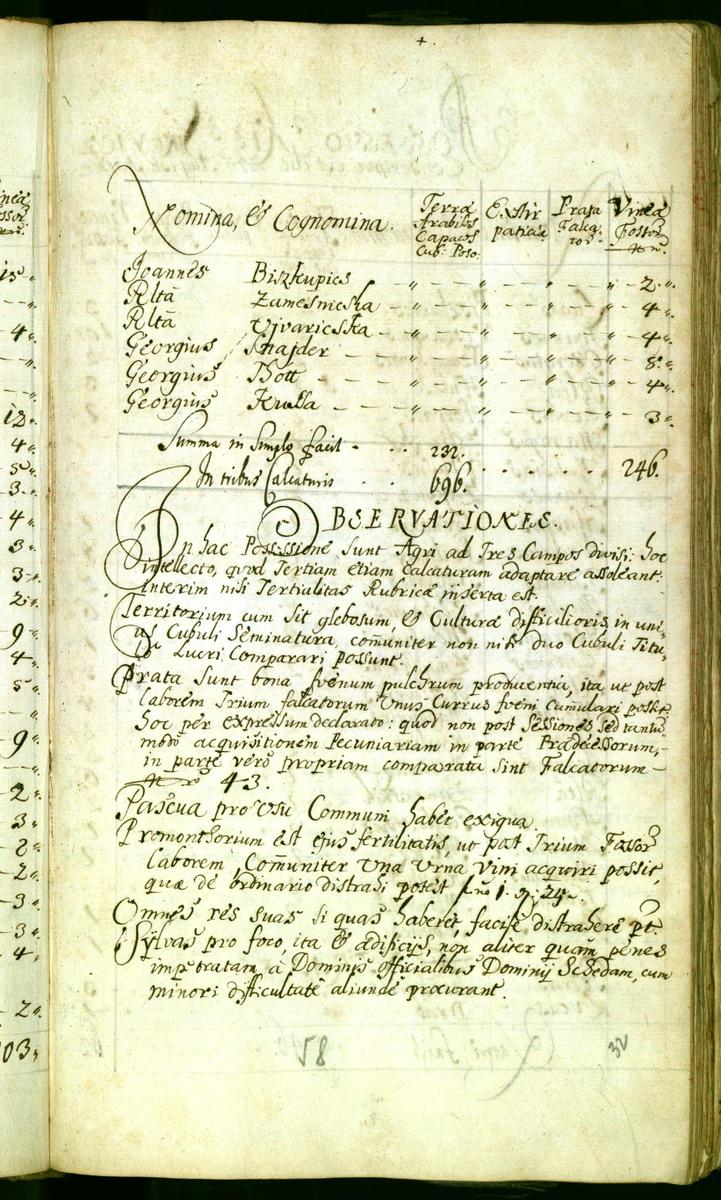 Nomina, & Cognomina. Terræ Arabiles Capaces Cub: Poso: Extirpatitiæ Prata Falcator: Vineæ Fossor: Nr.
Joannes Biszkupics - „ - - „ - - „ - - „ - 2 „
Rlta Zamesnicska - „ - - „ - - „ - - „ - 4 „
Rlta Ujvaricska - „ - - „ - - „ - - „ - 4 „
Georgius Snajder - „ - - „ - - „ - - „ - 8 „
Georgius Thott - „ - - „ - - „ - - „ - 4 „
Georgius - „ - - „ - - „ - - „ - 3 „
Summa in Simplo facit - . . 232.
In tribus Calcaturis . . 696. . . . . 246.
OBSERVATIONES.
In hac Possessione sunt Agri ad Tres Campos divisi: hoc
intellecto, quod Tertiam etiam Calcaturam adaptare assoleant:
interim nisi Tertialitas Rubricæ inserta est.
Territorium cum sit glebosum, & Culturæ difficilioris, in uni-
us Cubuli Seminatura, com̄uniter non nisi duo Cubuli Titu-
lo Lucri Comparari possunt.
Prata sunt bona fœnum pulchrum producentia, ita ut post
laborem Trium falcatorum Unus Currus fœni cumulari posset,
hoc per expressum declarato: quod non post Sessiones, sed tantum
modo acquisitionem Pecuniariam in parte Prædecessorum,
in parte vero propriam comparata sint Falcatorum
Nr 43.
Pascua pro Usu Communi habet exigua.
Promonthorium est ejus fertilitatis, ut post Trium Fossor:
Laborem, Com̄uniter Una Urna Vini acquiri possit,
quæ de ordinario distrahi potest fl̄no 1. Xr 24.
Omnes res suas si quas haberet, facile distrahere pt.
Sylvas pro foco, ita & ædificijs, non aliter quam penes
impetratam, â Dominis officialibus Dominij Schedam, cum
minori difficultate aliunde procurant.
58
32
15 „
4 „
12 „
4 „
5 „
3 „
4 „
3 „
3 „
2 „
9 „
4 „
5 „
9 „
2 „
3 „
2 „
2 „
3 „
3 „
4 „
2 „
03 „